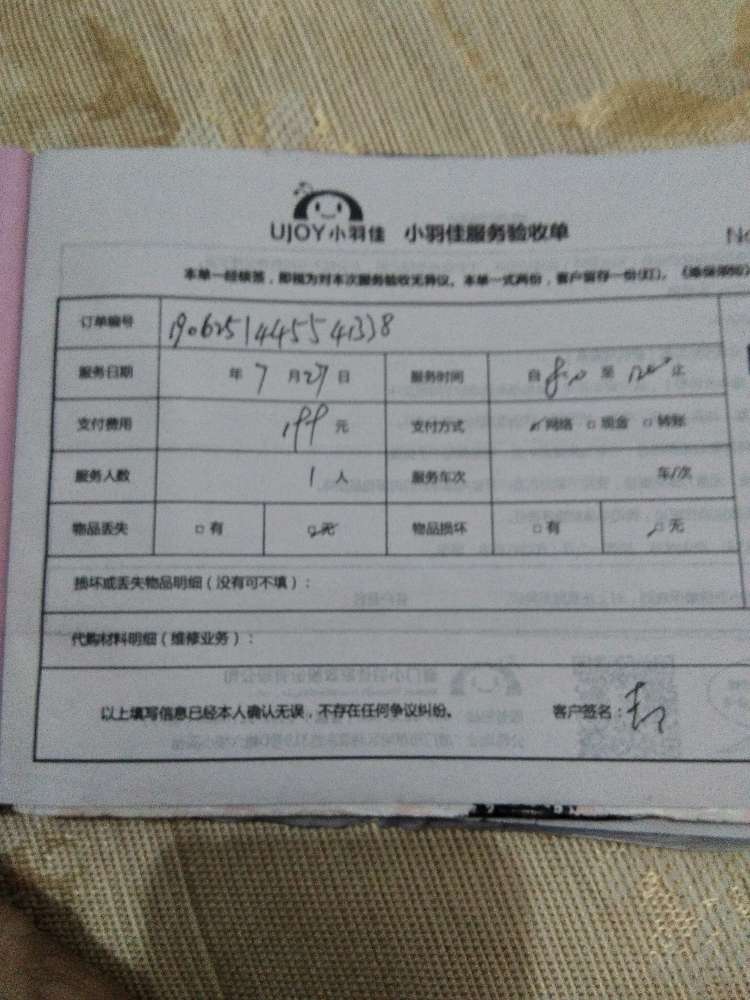 UJOY小羽佳 小羽佳服务验收单
No
本单一经核签，即视为对本次服务验收无异议。本单一式两份，客户留存一份(红)。
订单编号 1906251445541338
服务日期 年 7 月 27 日 服务时间 自 8:00 至 12:00 止
支付费用 199 元 支付方式 网络 现金 转账
服务人数 1 人 服务车次 车/次
物品丢失 有 无 物品损坏 有 无
损坏或丢失物品明细（没有可不填）：
代购材料明细（维修业务）：
以上填写信息已经本人确认无误，不存在任何争议纠纷。 客户签名：